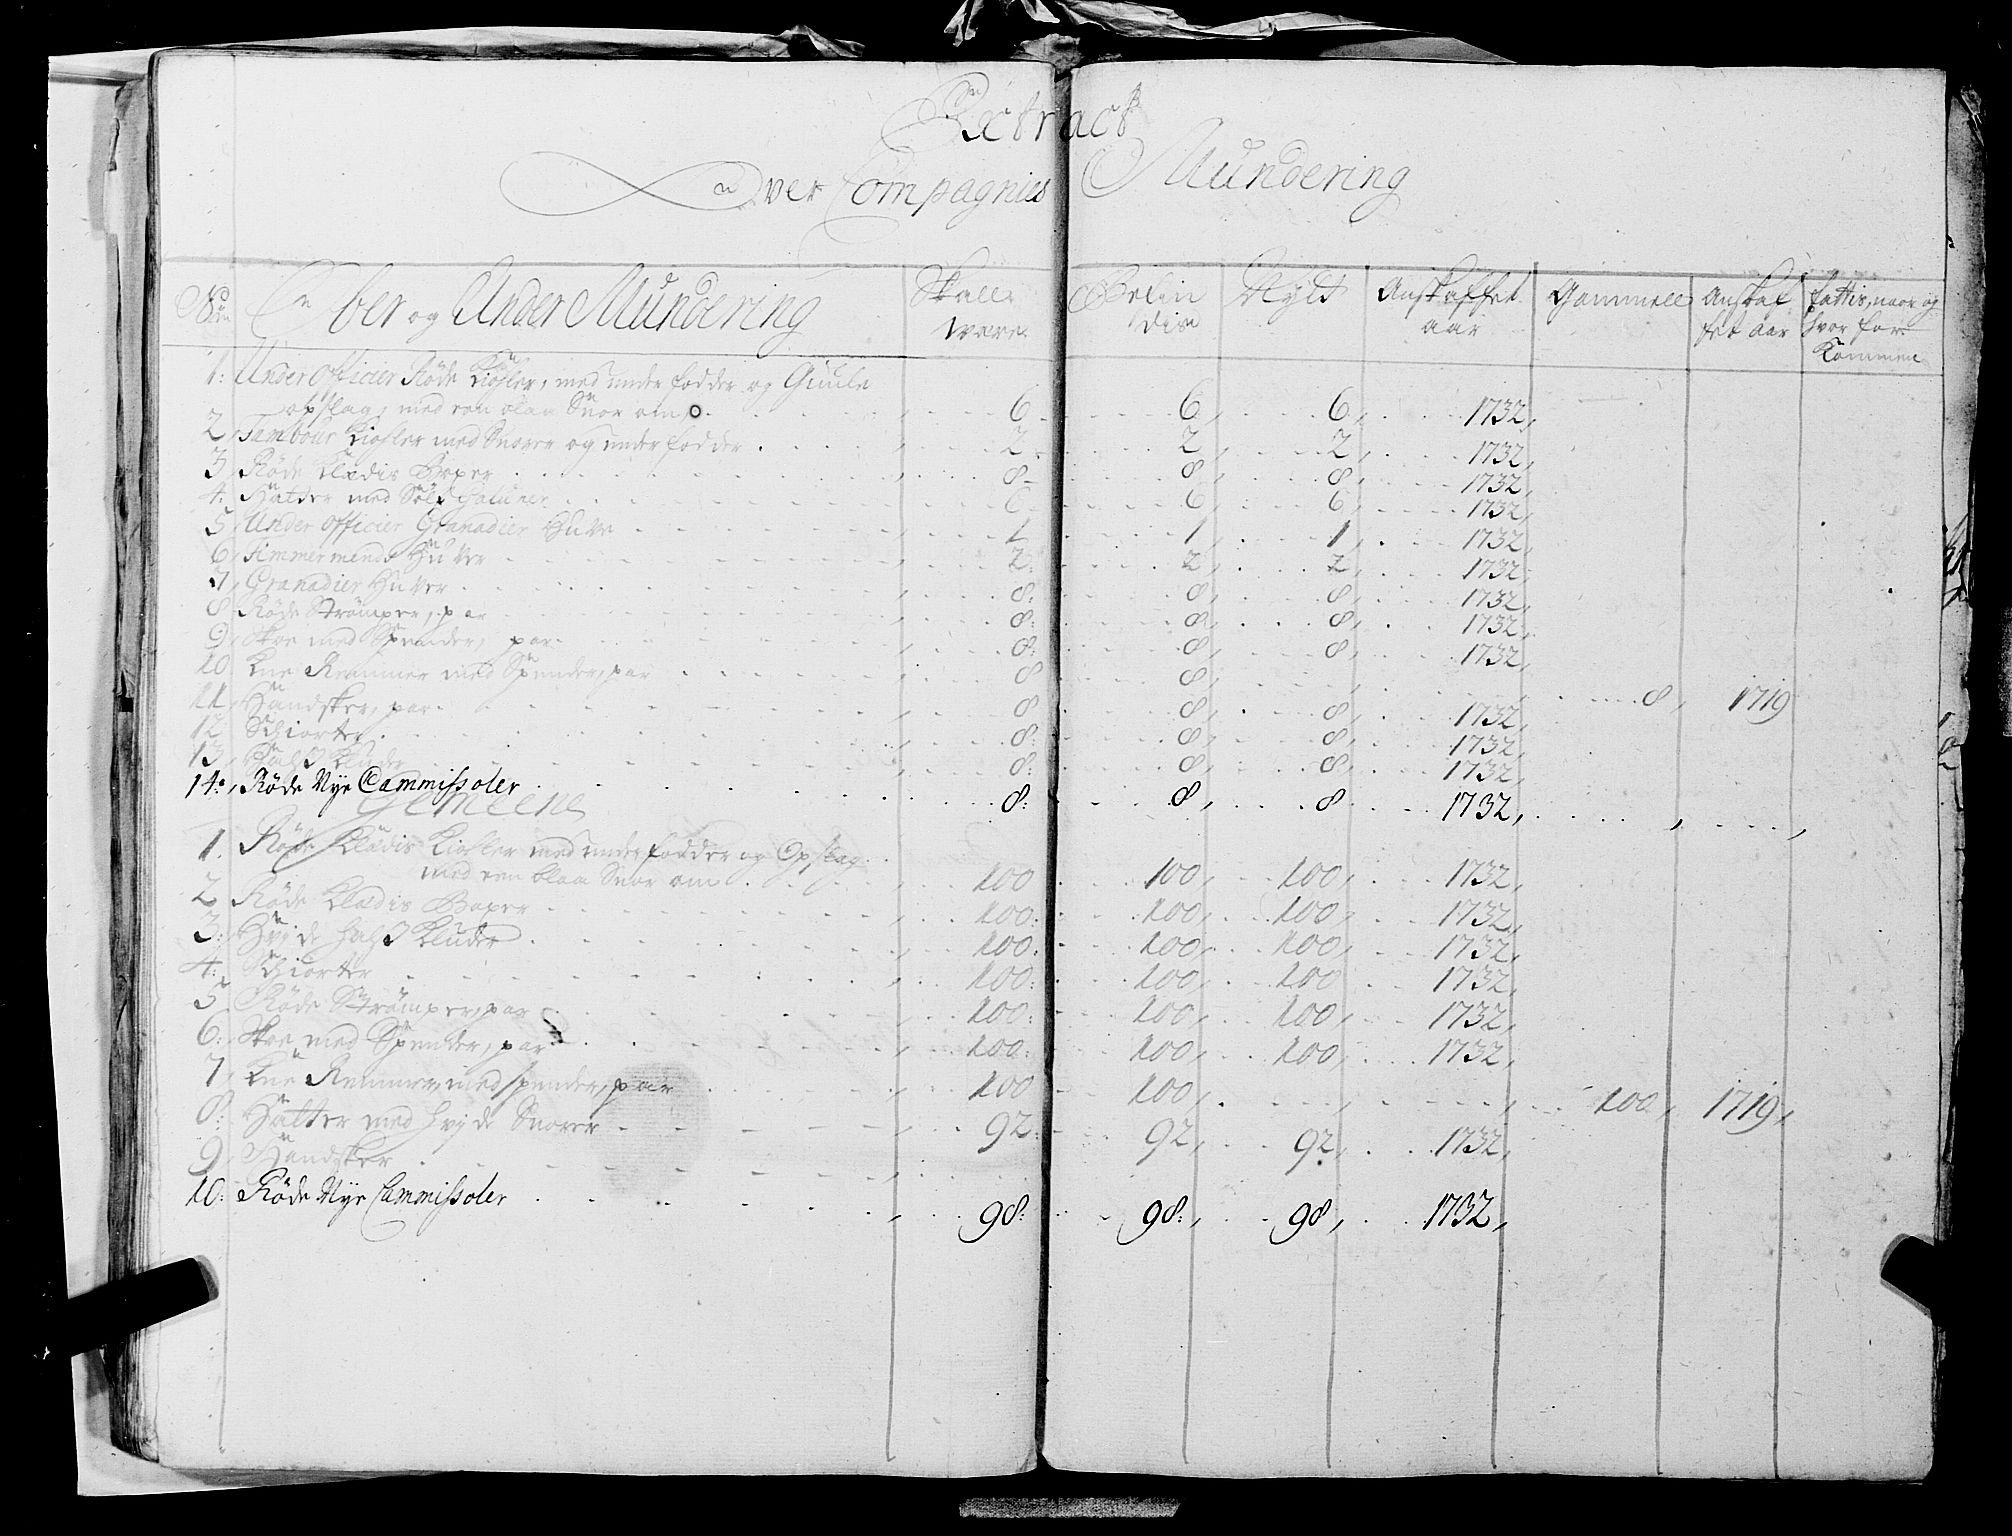 Extract
Over Compagniets Mundering
No Ober og Under Mundering Skall were Befindis Nyldt Anskaffet aar Gammell Anskaffet aar fattis, naar og hvor for kommen
1: Under Officier Røde Kiohler, med under fodder og Guule
opslag, med een blaa Snor om 6 6, 6, 1732,
2, Tambour Kiohler med Snorer og under fodder 2 2, 2, 1732,
3, Røde Klædis Boxer 8 8, 8, 1732,
4: Hatter med Sølf Galuner 6 6, 6, 1732,
5, Under Officier Granadier Huve 1 1, 1, 1732,
6, Timmermends Huver 2: 2, 2, 1732,
7, Granadier Huver 8: 8, 8, 1732,
8 Røde Strømper, par 8: 8, 8, 1732,
9, Skoe med Spender, par 8: 8, 8, 1732,
10 Knæ Remmer med Spender, par 8 8, 8, 1719
11, Handsker, par 8 8, 8, 1732,
12 Schiorter 8: 8, 8, 1732,
13, Hals Kluder 8: 8, 8, 1732,
14:, Røde Nye Cammissoler 8: 8, 8 1732,
Gemeene
1. Røde Klædis Kiohler med under fodder og Opslag
med een blaa Snor om 100 100, 100, 1732,
2 Røde Klædis Boxer 100: 100, 100, 1732,
3: Hvide Hals Kluder 100: 100, 100, 1732,
4: Schiorter 100: 100, 100 1732,
5 Røde Strømper, par 100: 100, 100, 1732,
6: Skoe med Spender, par 100: 100, 100, 1732,
7, Knæ Remmer med spender, par 100 100, 100, 1719,
8: Hatter med hvide Snorer 92: 92, 92, 1732,
9, Handsker
10: Røde Nye Cammissoler 98: 98:, 98, 1732,